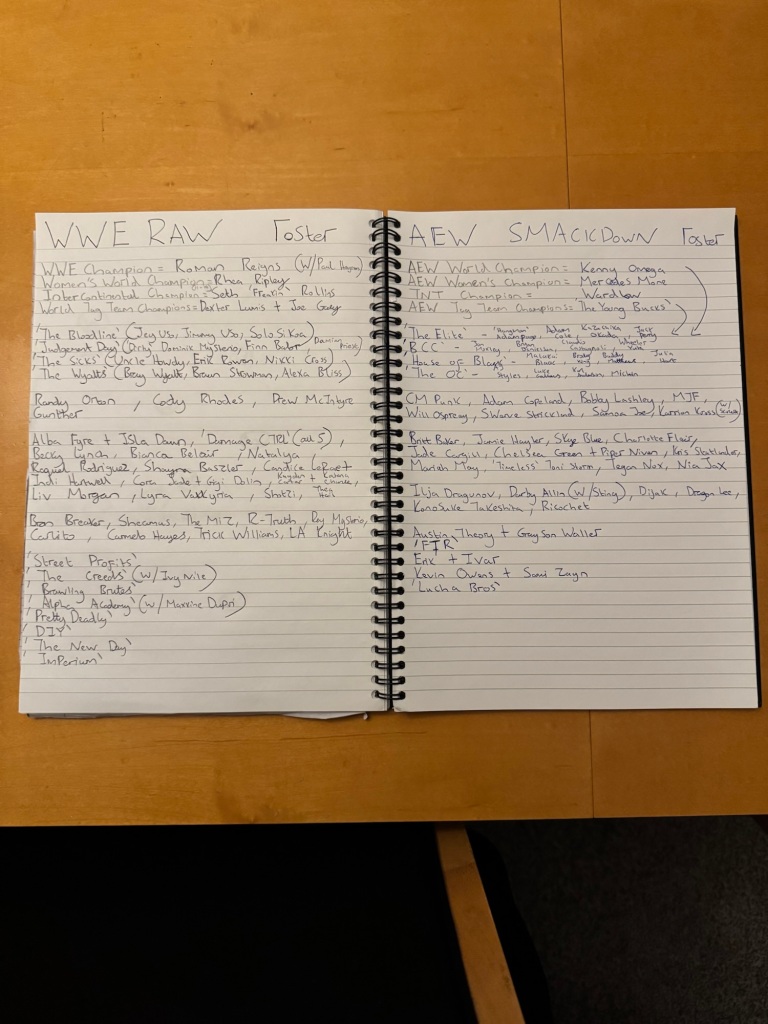 WWE RAW Foster
WWE Champion = Roman Reigns (W/Paul Heyman)
Women's World Champion = Rhea Ripley
Intercontinental Champion = Seth 'Freakin' Rollins
World Tag Team Champions = Dexter Lumis + Joe Gacy
'The Bloodline' (Jey Uso, Jimmy Uso, Solo Sikoa)
'Judgement Day' ('Dirty' Dominik Mysterio, Finn Balor, Damian Priest)
'The Sicks' (Uncle Howdy, Erik Rowan, Nikki Cross)
'The Wyatts' (Bray Wyatt, Braun Strowman, Alexa Bliss)
Randy Orton, Cody Rhodes, Drew McIntyre
Gunther
Alba Fyre + Isla Dawn, 'Damage CTRL' (all 5),
Becky Lynch, Bianca Belair, Natalya,
Raquel Rodriguez, Shayna Baszler, Candice LeRae +
Indi Hartwell, Cora Jade + Gigi Dolin, Kayden Carter + Katana Chance,
Liv Morgan, Lyra Valkyria, Shotzi,
Bron Breaker, Sheamus, The Miz, R-Truth, Rey Mysterio,
Carlito, Carmelo Hayes, Trick Williams, LA Knight
'Street Profits'
'The Creeds' (W/ Ivy Nile)
'Brawling Brutes'
'Alpha Academy' (W/ Maxxine Dupri)
'Pretty Deadly'
'DIY'
'The New Day'
'Imperium'
AEW SMACKDOWN Foster
AEW World Champion = Kenny Omega
AEW Women's Champion = Mercedes Mone
TNT Champion = Wardlow
AEW Tag Team Champions = 'The Young Bucks'
'The Elite' - 'Hangman' Adam Page, Adam Cole, Kazuchika Okada, Jack Perry
B.C.C - Jon Moxley, Bryan Danielson, Claudio Castagnoli, Wheeler Yuta
House of Black - Malakai Black, Brody King, Buddy Matthews, Julia Hart
'The OC' - Styles, Luke Gallows, Karl Anderson, Michin
CM Punk, Adam Copeland, Bobby Lashley, MJF,
Will Ospreay, Swerve Strickland, Samoa Joe, Karrion Kross (W/ Scarlett)
Britt Baker, Jamie Hayter, Skye Blue, Charlotte Flair,
Jade Cargill, Chelsea Green + Piper Niven, Kris Statlander,
Mariah May, 'Timeless' Toni Storm, Tegan Nox, Nia Jax
Ilja Dragunov, Darby Allin (W/ Sting), Dijak, Dragon Lee,
Konosuke Takeshita, Ricochet
Austin Theory + Grayson Waller
'FTR'
Erik + Ivar
Kevin Owens + Sami Zayn
'Lucha Bros'